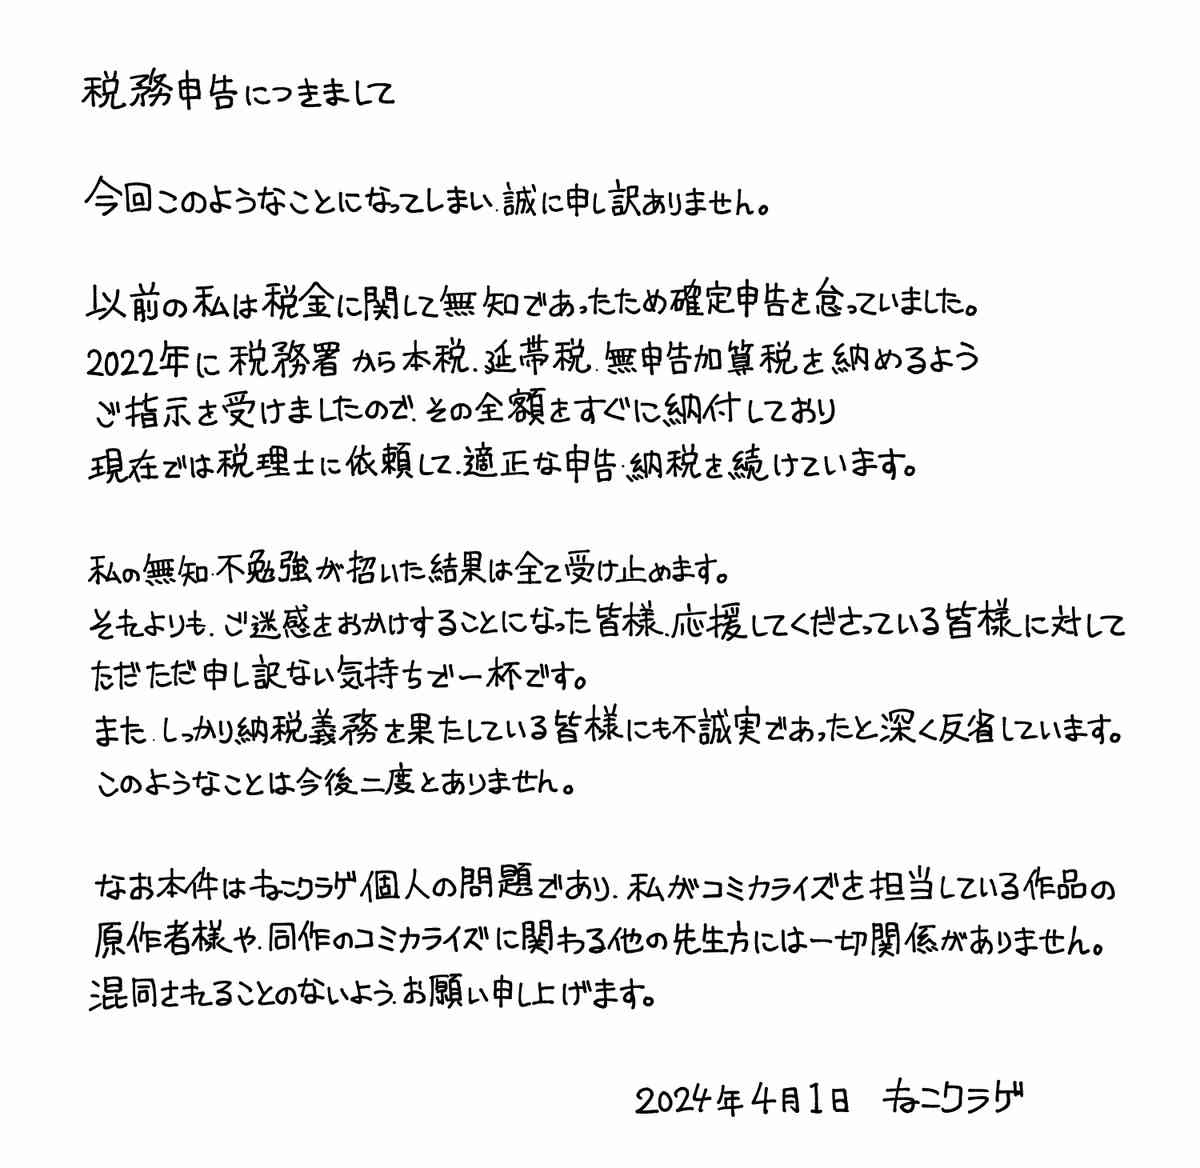 税務申告につきまして
今回このようなことになってしまい、誠に申し訳ありません。
以前の私は税金に関して無知であったため確定申告を怠っていました。
2022年に税務署から本税、延帯税、無申告加算税を納めるよう
ご指示を受けましたので、その全額をすぐに納付しており
現在では税理士に依頼して、適正な申告・納税を続けています。
私の無知・不勉強が招いた結果は全て受け止めます。
それよりも、ご迷惑をおかけすることになった皆様、応援してくださっている皆様に対して
ただただ申し訳ない気持ちで一杯です。
また、しっかり納税義務を果たしている皆様にも不誠実であったと深く反省しています。
このようなことは今後二度とありません。
なお本件はねこクラゲ個人の問題であり、私がコミカライズを担当している作品の
原作者様や、同作のコミカライズに関わる他の先生方には一切関係がありません。
混同されることのないよう、お願い申し上げます。
2024年4月1日 ねこクラゲ